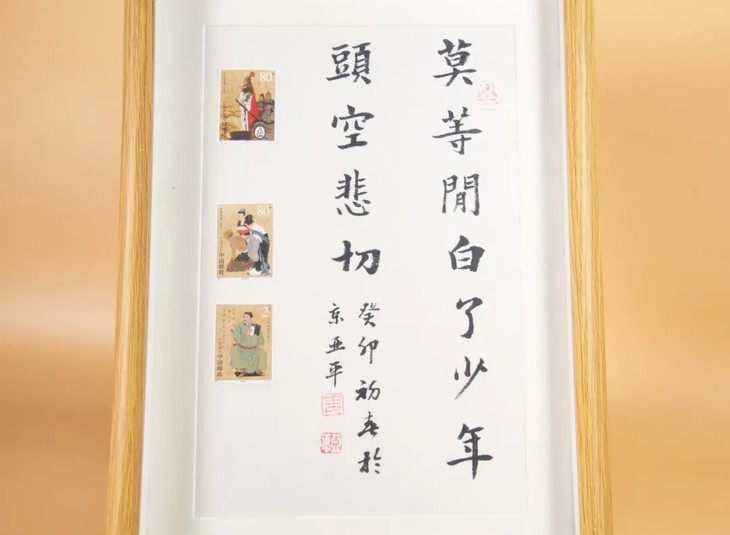 莫等閒白了少年
頭空悲切
癸卯初春於
京亚平
80
80
中国邮政
中国邮政